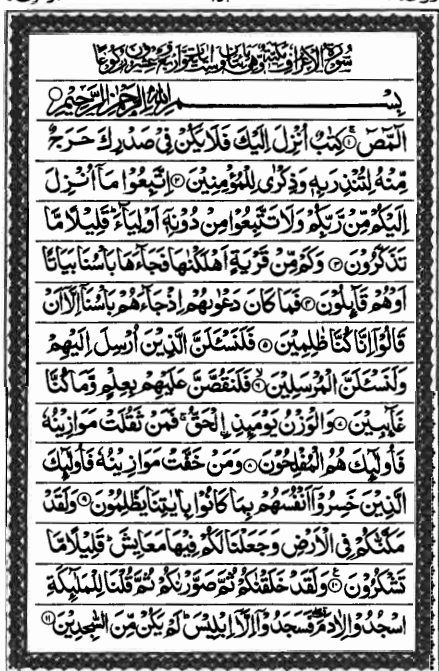 سُوْرَةُ الْاَعْرَافِ مَكِّيَّةٌ وَّهِيَ مِائَتَانِ وَسِتُّ اٰيَاتٍ وَّاَرْبَعٌ وَّعِشْرُوْنَ رُكُوْعًا
بِسْمِ اللّٰهِ الرَّحْمٰنِ الرَّحِيْمِ
الٓمّٓصٓ ۝۱ كِتٰبٌ اُنْزِلَ اِلَيْكَ فَلَا يَكُنْ فِيْ صَدْرِكَ حَرَجٌ
مِّنْهُ لِتُنْذِرَ بِهٖ وَذِكْرٰى لِلْمُؤْمِنِيْنَ ۝۲ اِتَّبِعُوْا مَآ اُنْزِلَ
اِلَيْكُمْ مِّنْ رَّبِّكُمْ وَلَا تَتَّبِعُوْا مِنْ دُوْنِهٖٓ اَوْلِيَآءَ ؕ قَلِيْلًا مَّا
تَذَكَّرُوْنَ ۝۳ وَكَمْ مِّنْ قَرْيَةٍ اَهْلَكْنٰهَا فَجَآءَهَا بَاْسُنَا بَيَاتًا
اَوْ هُمْ قَآئِلُوْنَ ۝۴ فَمَا كَانَ دَعْوٰىهُمْ اِذْ جَآءَهُمْ بَاْسُنَآ اِلَّآ اَنْ
قَالُوْٓا اِنَّا كُنَّا ظٰلِمِيْنَ ۝۵ فَلَنَسْـَٔلَنَّ الَّذِيْنَ اُرْسِلَ اِلَيْهِمْ
وَلَنَسْـَٔلَنَّ الْمُرْسَلِيْنَ ۝۶ فَلَنَقُصَّنَّ عَلَيْهِمْ بِعِلْمٍ وَّمَا كُنَّا
غَآئِبِيْنَ ۝۷ وَالْوَزْنُ يَوْمَئِذِ اِۨلْحَقُّ ۚ فَمَنْ ثَقُلَتْ مَوَازِيْنُهٗ
فَاُولٰٓئِكَ هُمُ الْمُفْلِحُوْنَ ۝۸ وَمَنْ خَفَّتْ مَوَازِيْنُهٗ فَاُولٰٓئِكَ
الَّذِيْنَ خَسِرُوْٓا اَنْفُسَهُمْ بِمَا كَانُوْا بِاٰيٰتِنَا يَظْلِمُوْنَ ۝۹ وَلَقَدْ
مَكَّنّٰكُمْ فِي الْاَرْضِ وَجَعَلْنَا لَكُمْ فِيْهَا مَعَايِشَ ؕ قَلِيْلًا مَّا
تَشْكُرُوْنَ ۝۱۰ وَلَقَدْ خَلَقْنٰكُمْ ثُمَّ صَوَّرْنٰكُمْ ثُمَّ قُلْنَا لِلْمَلٰٓئِكَةِ
اسْجُدُوْا لِاٰدَمَ ۖ فَسَجَدُوْٓا اِلَّآ اِبْلِيْسَ ؕ لَمْ يَكُنْ مِّنَ السّٰجِدِيْنَ ۝۱۱